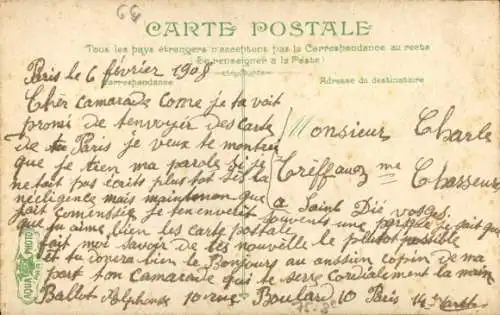 64
CARTE POSTALE
Tous les pays étrangers n'acceptent pas la Correspondance au recto
Se renseigner à la Poste!
Paris le 6 février 1908
Correspondance
Adresse du destinataire
Cher camarade come je ta voit
promi de tenvoyer des carte
De Paris je veux te montrer
que je tien ma parole si je
ne tait pas écrits plus tot sest la
négligence mais maintenan que
jait comensser je tenverit souvents une parseque je sait que
tu aime bien les carte postale
fait moi savoir de tes nouvelle le plutot possible
et tu donera bien le Bonjours au anssien copin de ma
part ton Camarade qui te serre cordialement la main
Ballot Alphonse 10 rue Boulard 10 Paris 14e
Monsieur Charle
Tréffauez
me Chasseur
a Saint Dié vosges
AQUA PHOTO